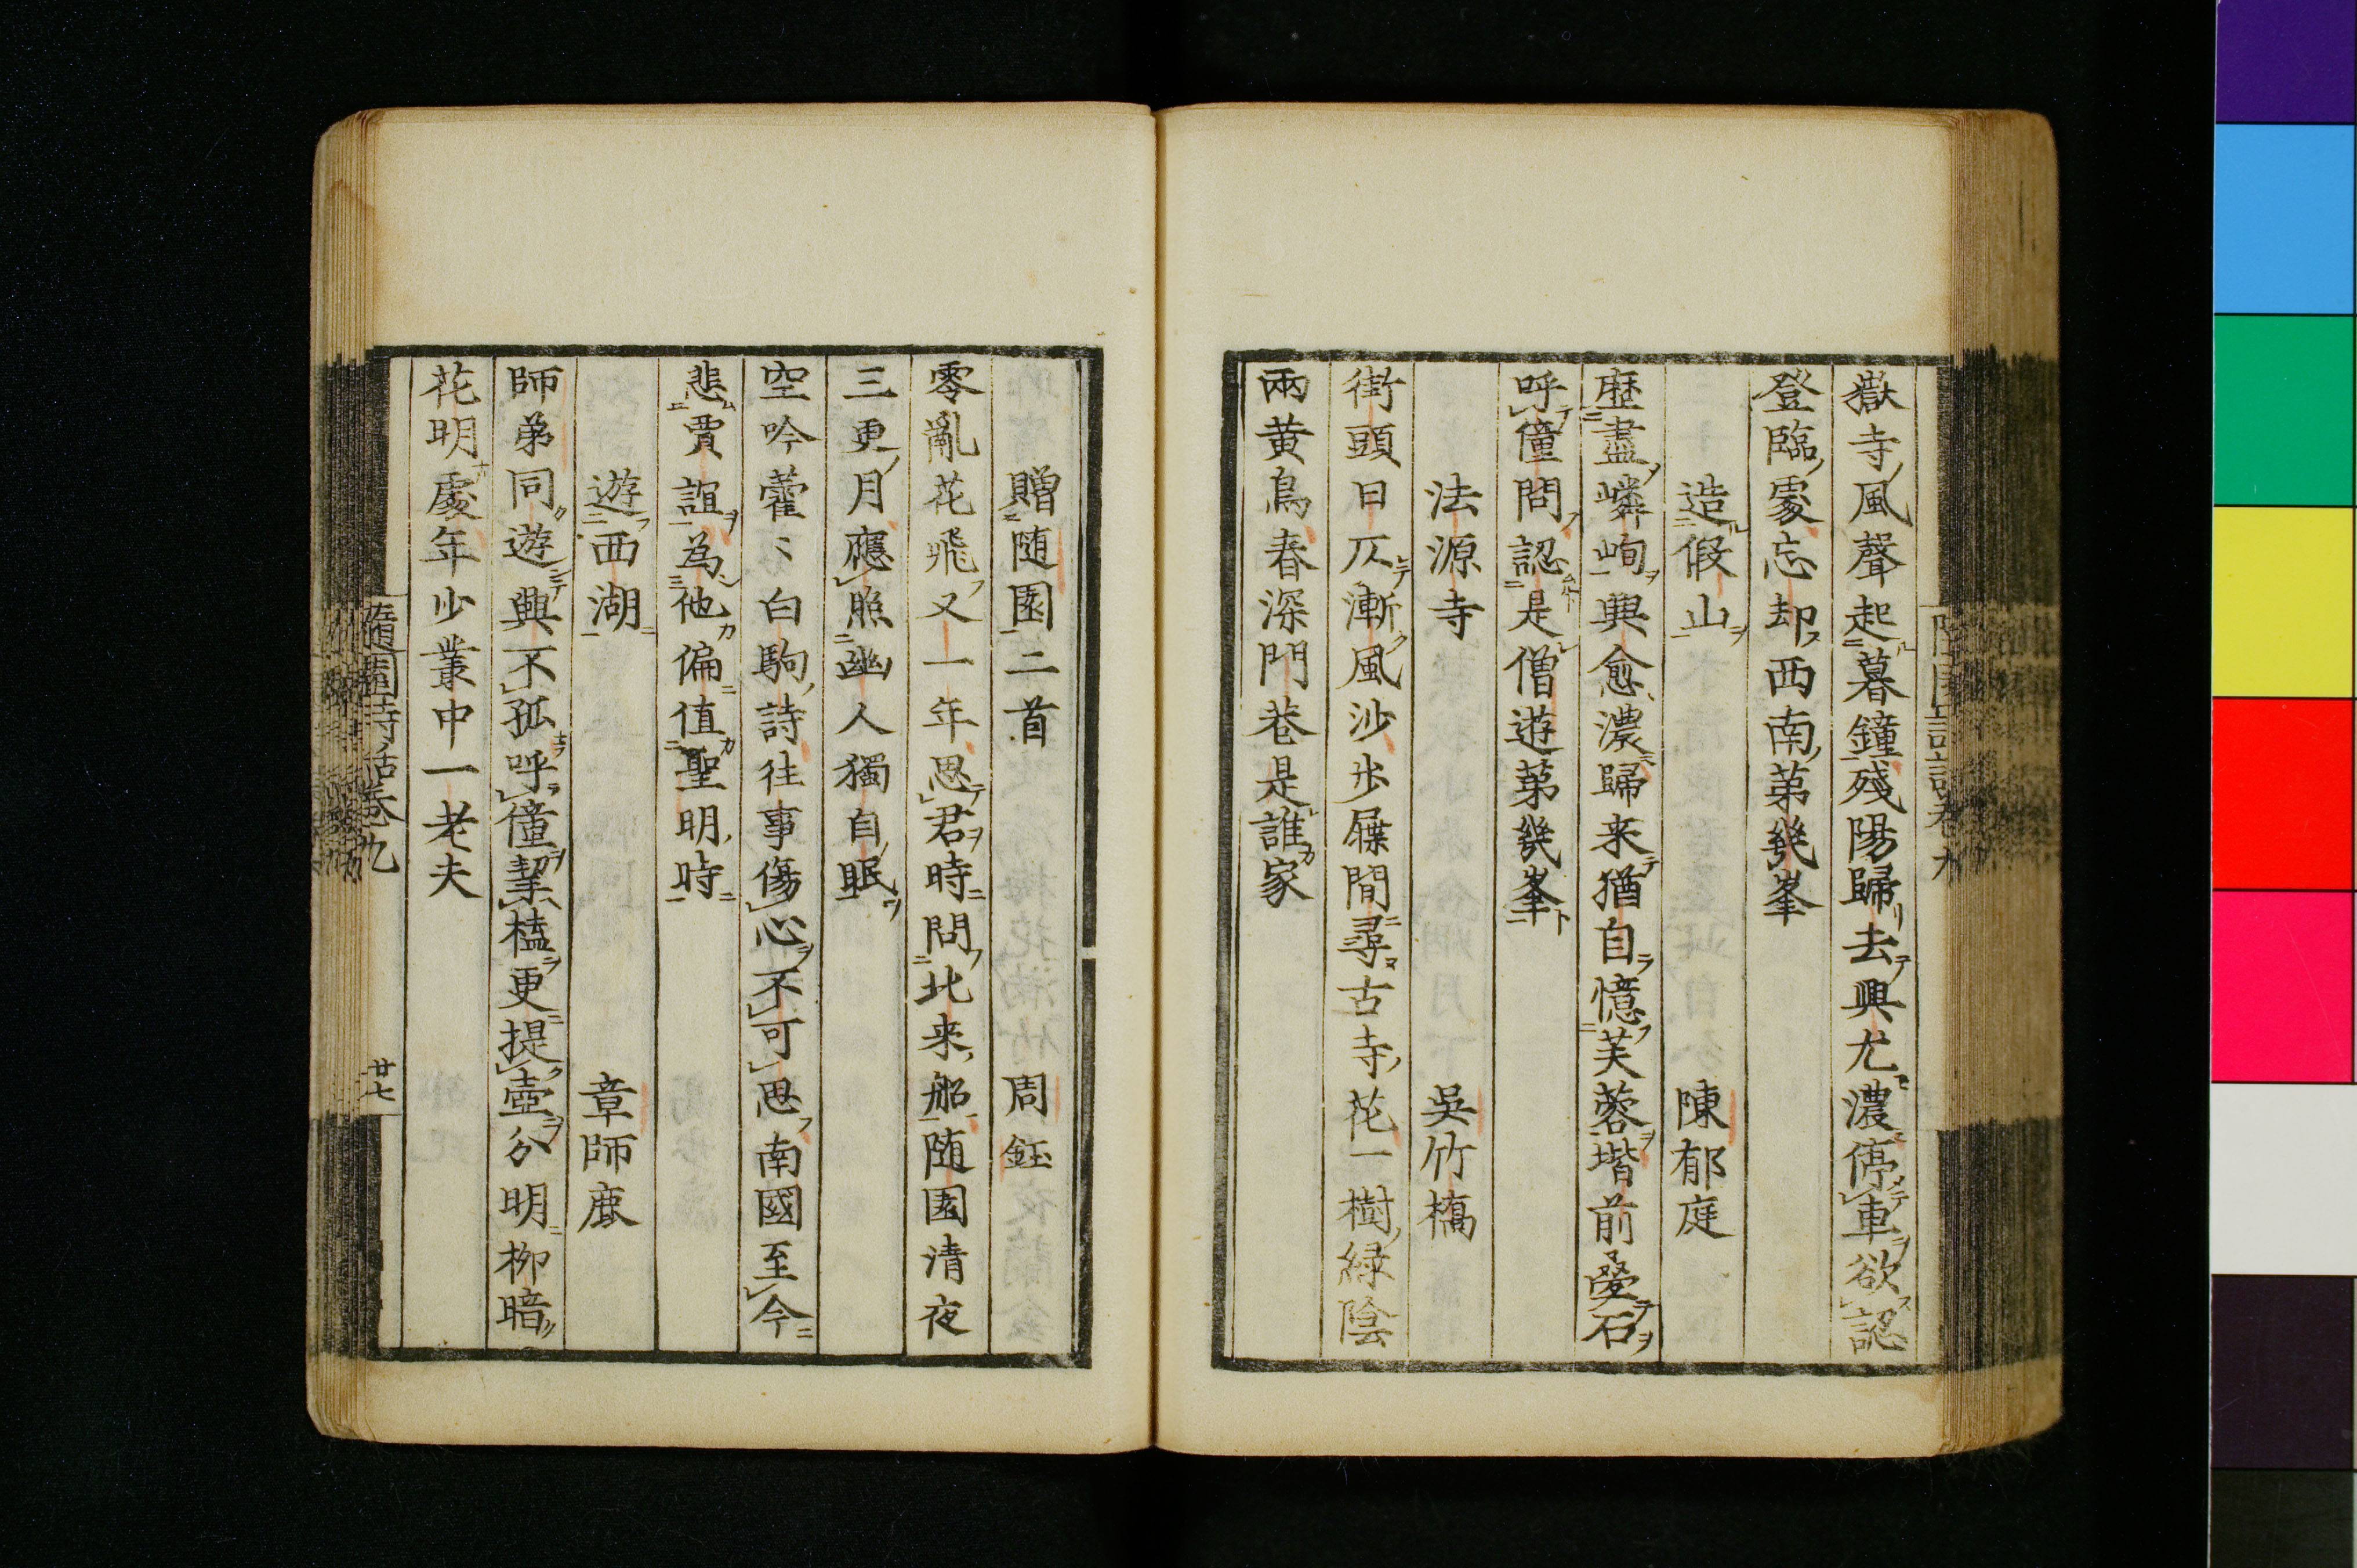 嶽寺風聲起暮鐘殘陽歸去興尤濃停車欲認
登臨處忘却西南第幾峯
造假山 陳郁庭
歷盡嶙峋興愈濃歸来猶自憶芙蓉堦前疊石
呼僮問認是僧遊第幾峯
法源寺 吳竹橋
街頭日仄漸風沙步屧閒尋古寺花一樹緑陰
兩黄鳥春深門巷是誰家
贈随園二首 周鈺
零亂花飛又一年思君時問北来船随園清夜
三更月應照幽人獨自眠
空吟藿〻白駒詩往事傷心不可思南國至今
悲賈誼為他偏值聖明時
遊西湖 章師鹿
師弟同遊興不孤呼僮挈榼更提壺分明柳暗
花明處年少叢中一老夫
隨園詩話卷九
廿七